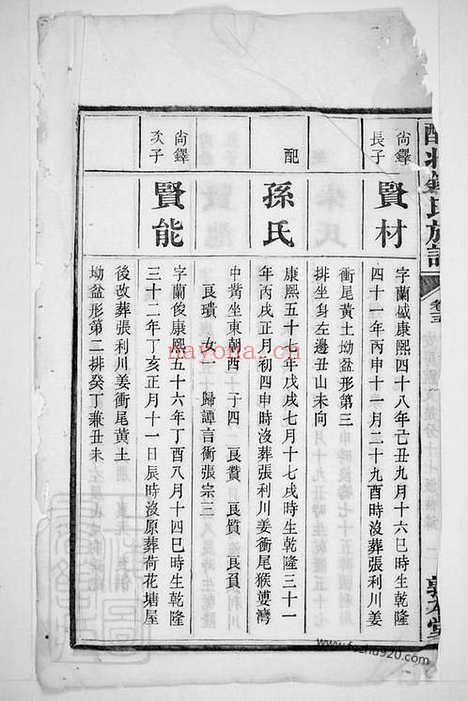 族譜
卷三
尚鐸
長子
賢材
字蘭馘康熙四十八年己丑九月十六巳時生乾隆
四十一年丙申十一月二十九酉時沒葬張利川姜
衝尾黃土坳盆形第三
排坐身左邊丑山未向
配
孫氏
康熙五十七年戊戌七月十七戌時生乾隆三十一
年丙戌正月初四申時沒葬張利川姜衝尾猴婆灣
中嘴坐東朝酉 子四 良贊 良質 良貟
良璝 女一 歸譚言衝張宗三
尚鐸
次子
賢能
字蘭俊康熙五十六年丁酉八月十四巳時生乾隆
三十二年丁亥正月十一日辰時沒原葬荷花塘屋
後改葬張利川姜衝尾黃土
坳盆形第二排癸丁兼丑未
nayona.cn
www.fozhu920.com